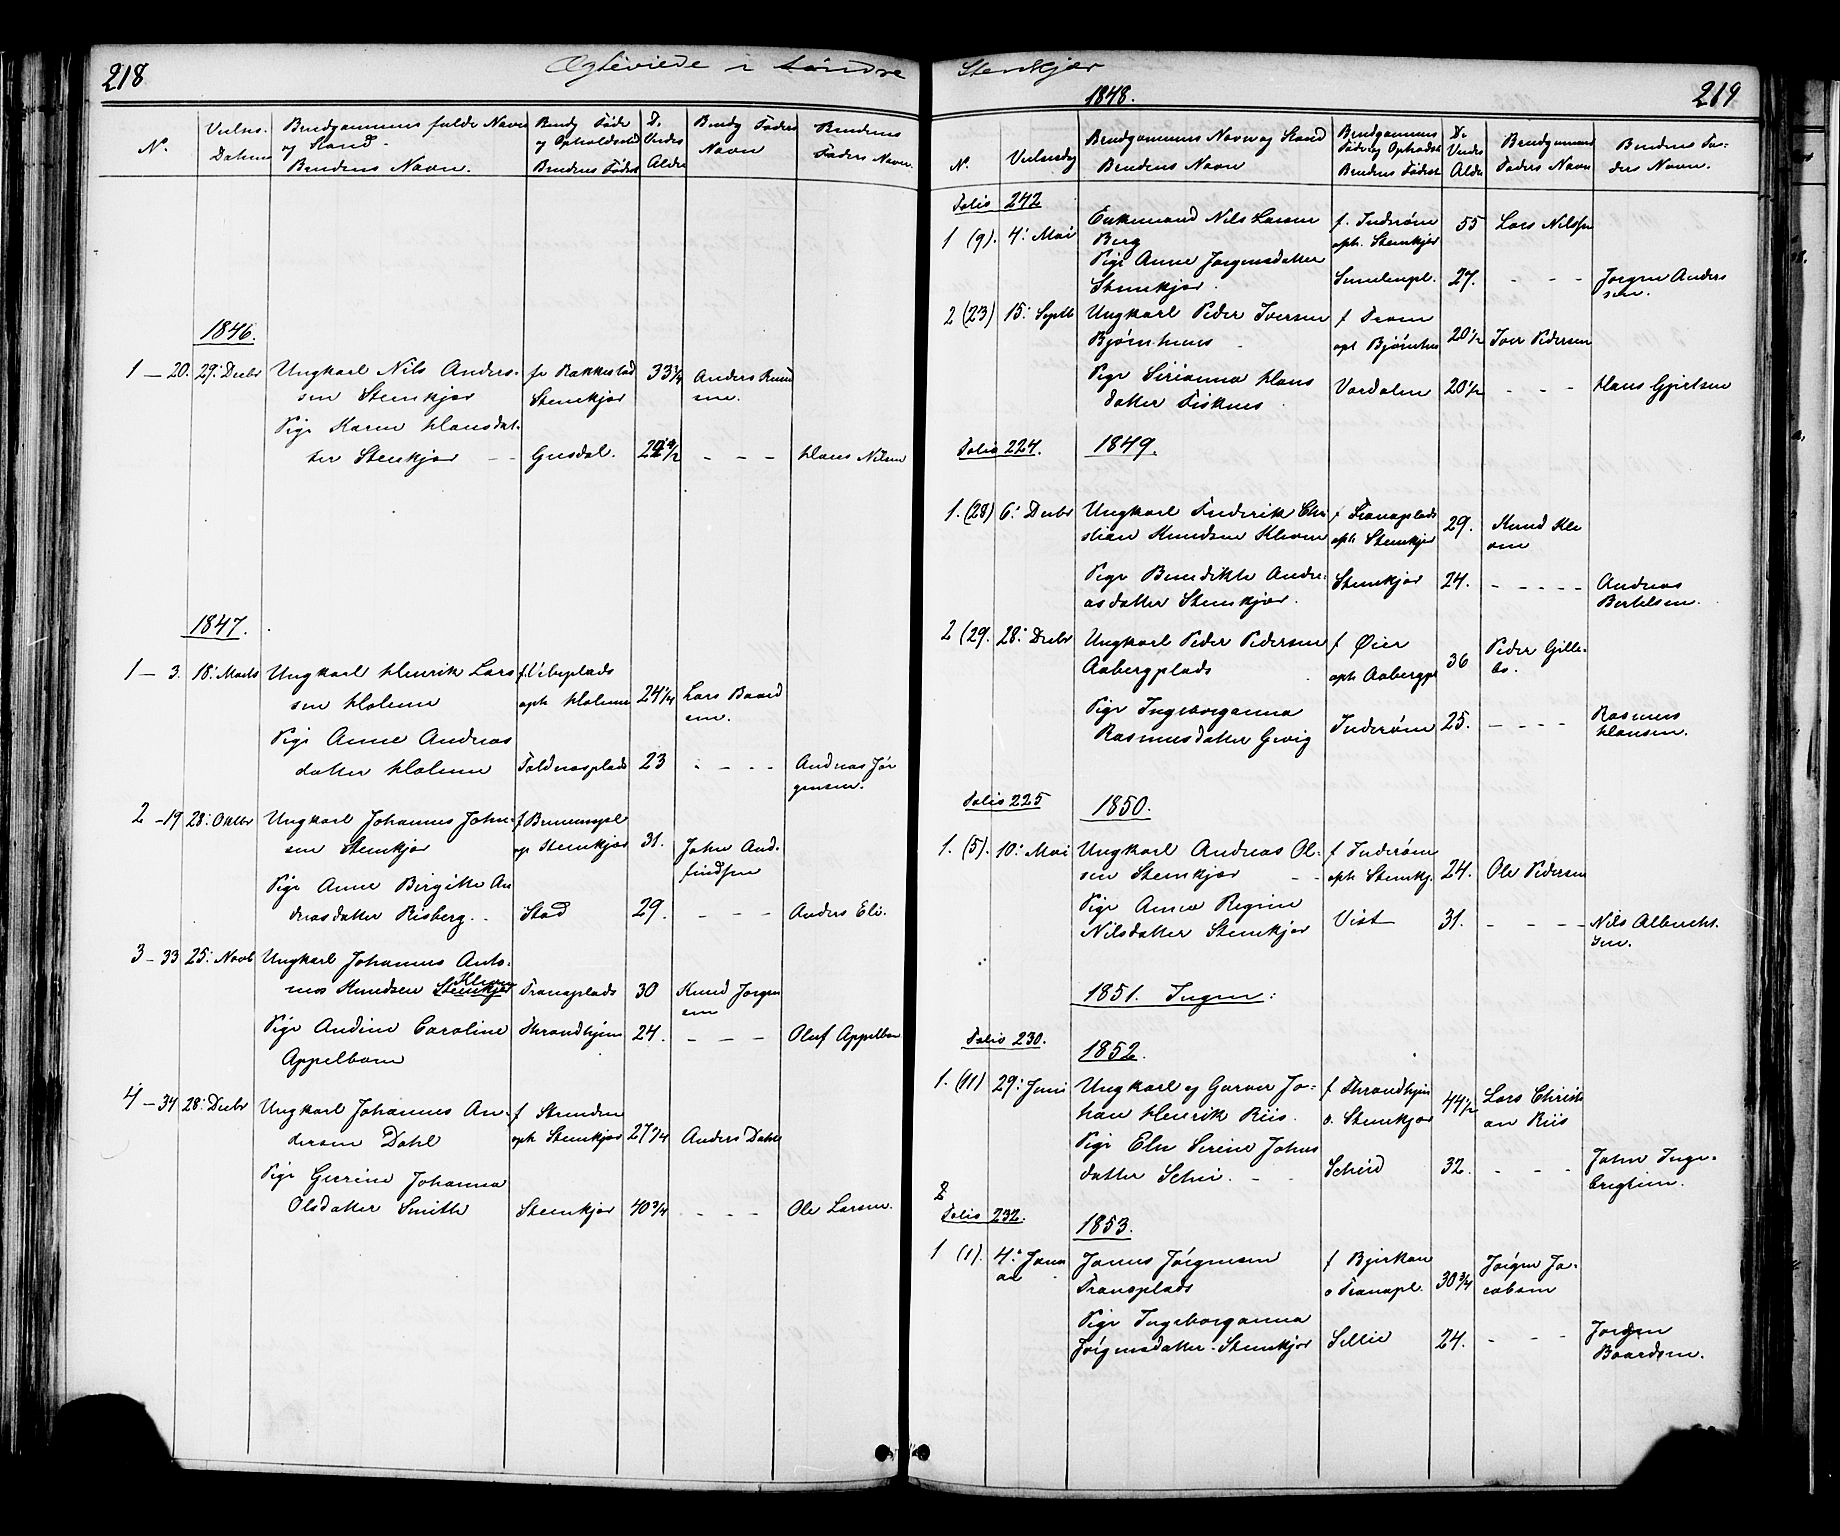 218
Ægteviede i Søndre
N.
Vielses-
Datum
Brudgommens fulde Navn
og Stand
Brudens Navn.
Brudg Føde
og Opholdssted
Brudens Fødest
D:
Vedes
Alder
Brudg Faders
Navn
Brudens
Faders Navn.
1846.
1 – 20. 29: Decbr
Ungkarl Nils Anders-
sen Steinkjær
fr Rakkestad
Steinkjær
33 1/4
Anders
Pige Karen Hansdat-
ter Steinkjær
Gusdal.
- - -
Hans Nilsen
1847.
1 – 3. 18: Marts
Ungkarl Henrik Lars
sen Holmen
f. Vibeplads
oph Holmen
24 1/4
Lars Baard
sen.
Pige Anne Andreas
datter Holmen
Foldnasplads
23
- - - -
Andreas Jør
gensen.
2 – 19 28: Oktbr
Ungkarl Johannes John-
sen Steinkjær
f Brunenspl
op Steinkjær
31.
John And-
findsen
Pige Anne Birgitte An
dreasdatter Risberg.
Stod
29.
- - -
Anders Eli.
3 – 33 25: Novb
Ungkarl Johannes Anto-
nius Knudsen Steinkjær Kleven
Tranaplads
30
Knud Jørgen
sen
Pige Andine Caroline
Appelbom
Thrandhjem
24.
- - -
Oluf Appelbom
4 – 34 28: Decbr
Ungkarl Johannes An-
dersen Dahl
f Strinden
oph Steinkjær
27 1/4
Anders Dahl
Pige Gurine Johanna
Olsdatter Smith
Steinkjær
40 3/4
- - - -
Ole Larsen.
Stenkjær
219
1848.
N.
Vielsesdag
Brudgommens Navn og Stand
Brudens Navn
Brudgommens
Føde og Opholdst
Brudens Fødest
D:
Vedes
Alder
Brudgommens
Faders Navn
Brudens Fa-
ders Navn.
Folio 242
1 (9). 4: Mai
Enkemand Nils Larsen
Berg
f. Inderøen
oph. Steinkjær
55
Lars Nilssen
Pige Anne Jørgensdatter
Steinkjær.
Sundenpl.
27.
- - -
Jørgen Anders
sen.
2 (23) 15: Septb
Ungkarl Peder Iversen
Bjørnhuus
f Frøen
opt Bjørnhus
20 1/2
Iver Pedersen
Pige Sirianna Hans
datter Fisknes
Værdalen
20 1/2
- - -
Hans Gjertsen
Folio 224.
1849.
1. (28) 6: Decbr
Ungkarl Frederik Chri
stian Knudsen Kleven
f Tranaplads
oph Steinkjær
29.
Knud Kle
ven
Pige Benedikte Andre-
asdatter Steinkjær.
Steinkjær
24.
- - - - -
Andreas
Bertelsen.
2 (29. 28: Decbr
Ungkarl Peder Pedersen
Aabergplads
f Øier
oph Aabergpl
36
Peder Gille-
bo.
Pige Ingeborganna
Rasmusdatter Gevig
Inderøen
25.
- - - -
Rasmus
Hansen.
Folio 225
1850.
1. (5). 10: Mai
Ungkarl Andreas Ol-
sen Steinkjær
f Inderøen
oph Steinkj.
24.
Ole Pedersen
Pige Anna Regine
Nilsdatter Steinkjær
Vist
31.
- - - -
Nils Albrecht.
sen.
1851. Ingen:
Folio 230.
1852.
1. (11) 29: Juni
Ungkarl og Garver Jo-
han Henrik Riis.
f Thrandhjem
o. Steinkjær
44 1/2
Lars Christi
an Riis
Pige Elen Serine Johns
datter Schei.
Scheid
32.
- - -
John Inge-
brigtsen.
2
Folio 232.
1853.
1 (1). 4: Janu
ar
Jonus Jørgensen
Tranaplads
f Bjerkan
o Tranapl.
30 3/4
Jørgen Ja-
cobsen
Pige Ingeborganna
Jørgensdatter Steinkjær
Sellie
24.
- - -
Jørgen
Baardsen.